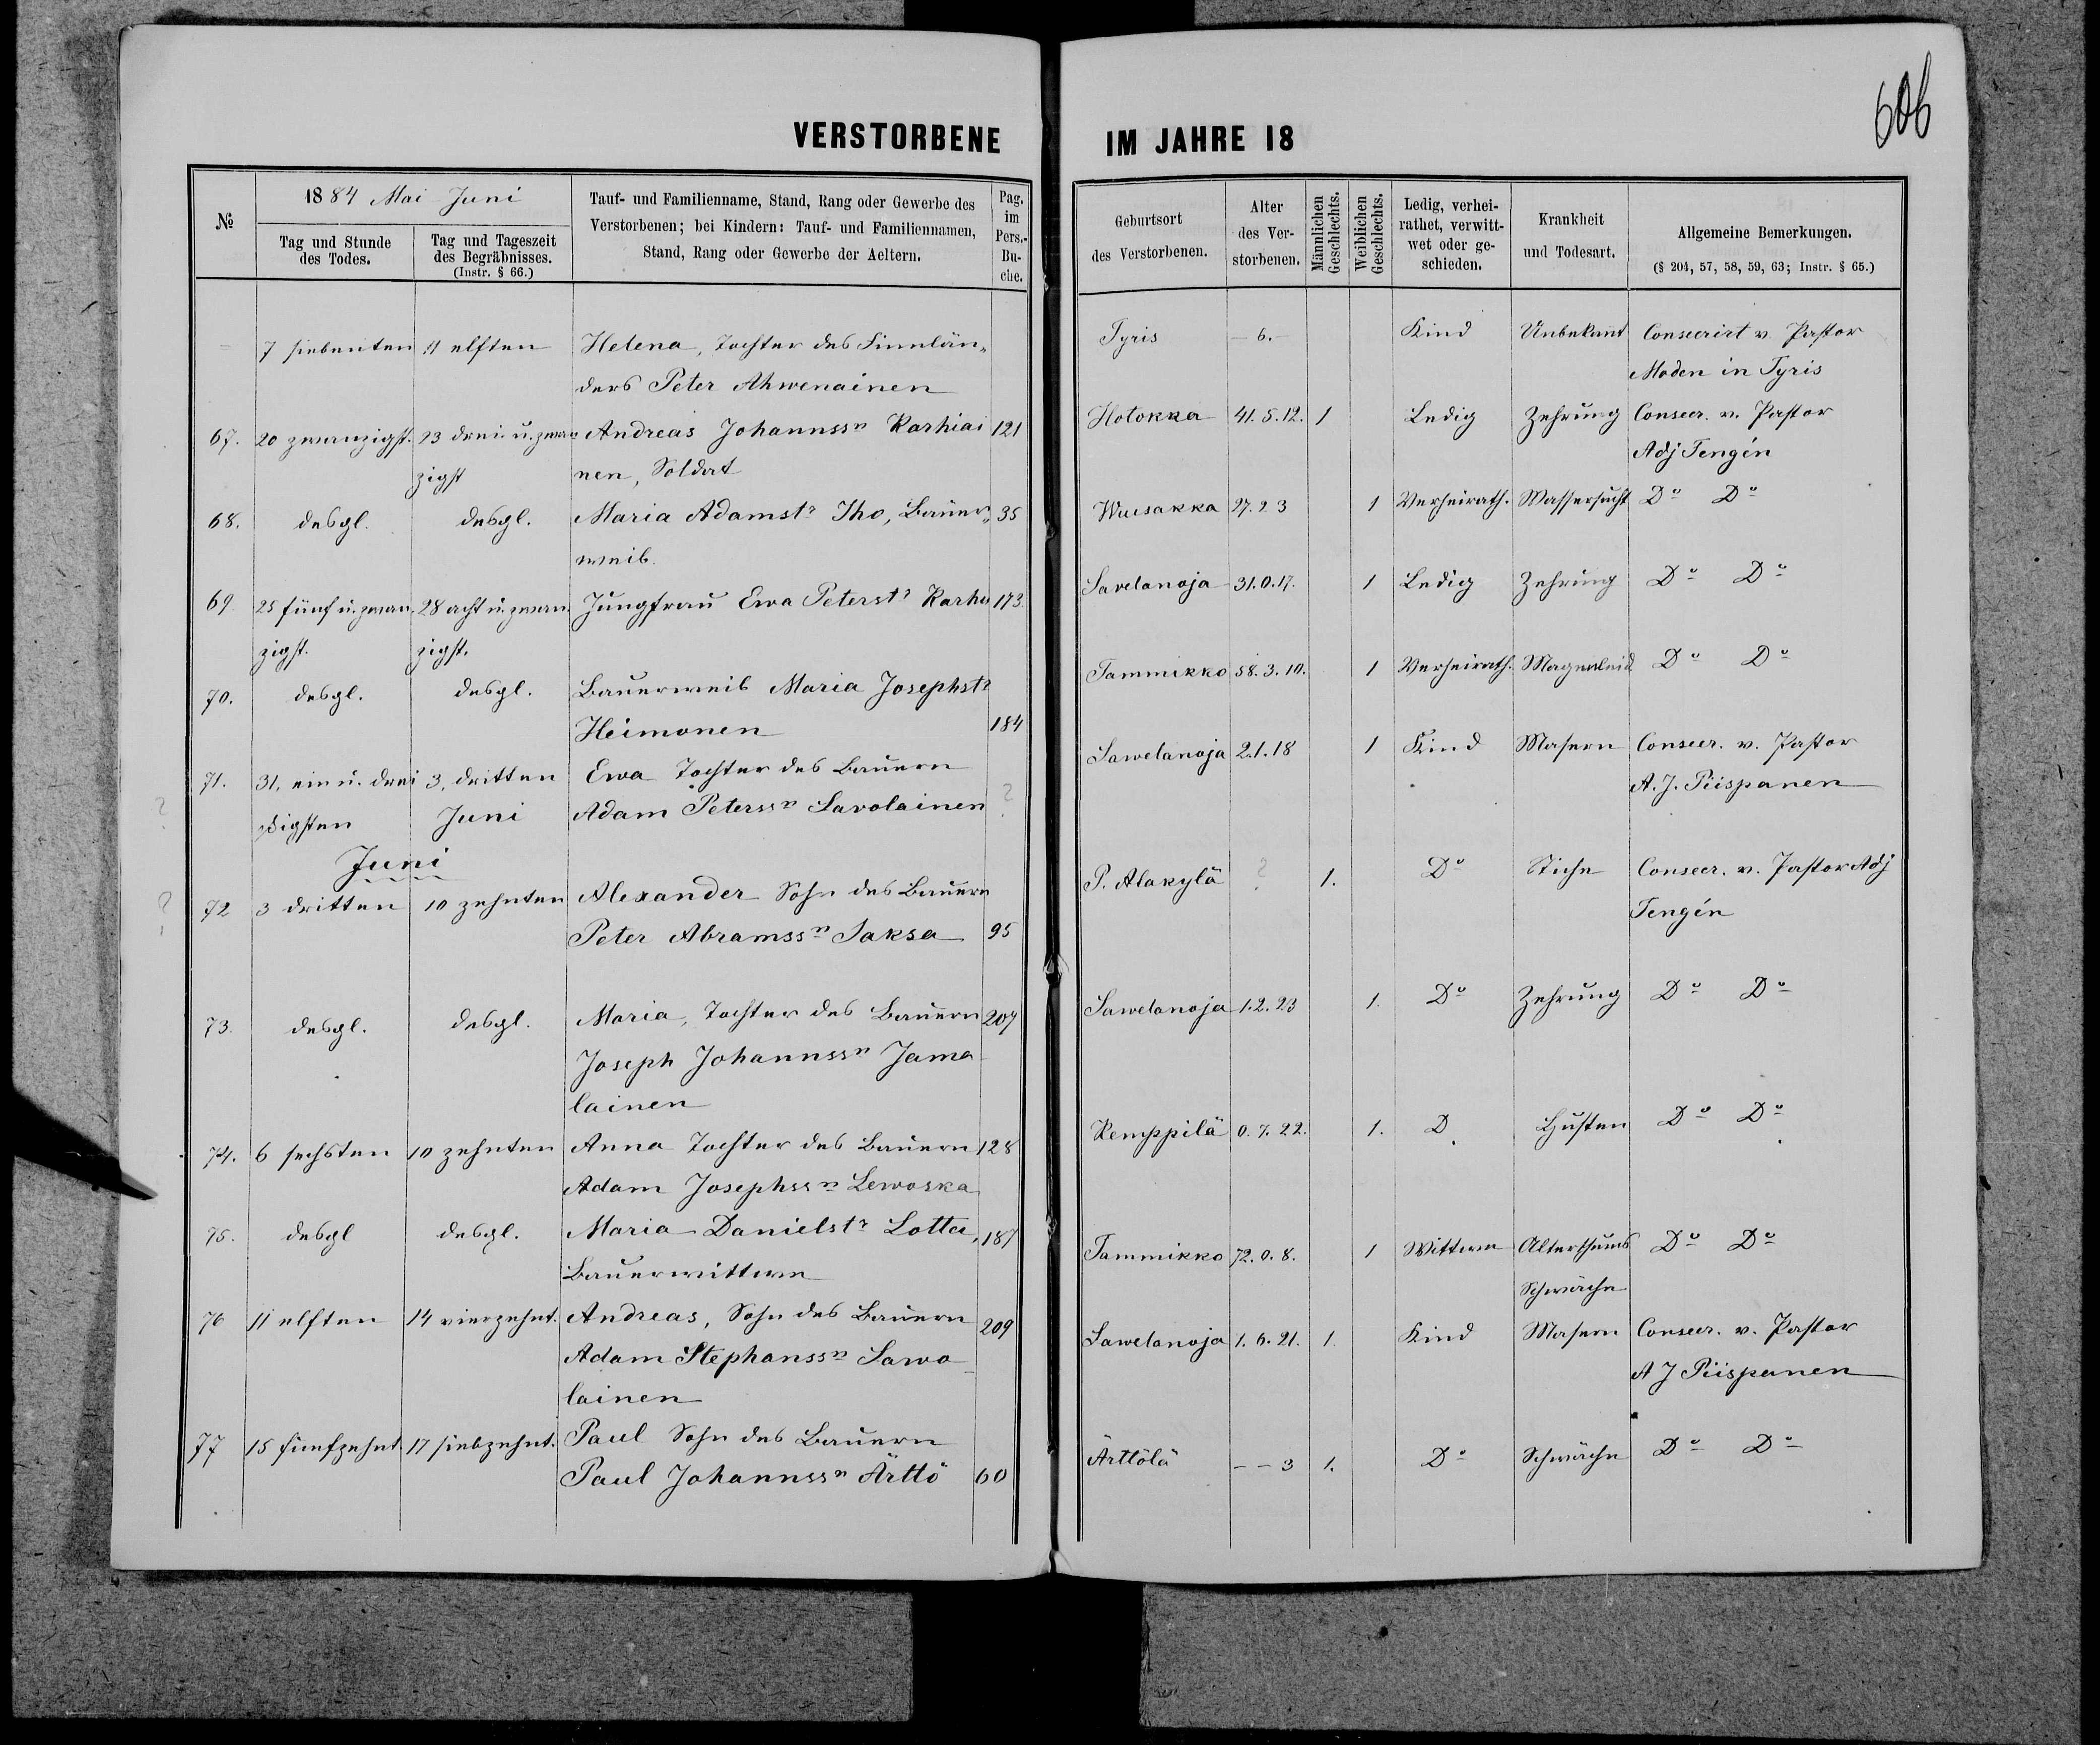 606
VERSTORBENE IM JAHRE 18
№
1884 Mai Juni
Tag und Stunde
des Todes.
Tag und Tageszeit
des Begräbnisses.
(Instr. § 66.)
Tauf- und Familienname, Stand, Rang oder Gewerbe des
Verstorbenen; bei Kindern: Tauf- und Familiennamen,
Stand, Rang oder Gewerbe der Aeltern.
Pag.
im
Pers.-
Bu-
che.
Geburtsort
des Verstorbenen.
Alter
des Ver-
storbenen.
Männlichen
Geschlechts.
Weiblichen
Geschlechts.
Ledig, verhei-
rathet, verwitt-
wet oder ge-
schieden.
Krankheit
und Todesart.
Allgemeine Bemerkungen.
(§ 204, 57, 58, 59, 63; Instr. § 65.)
7 siebenten 11 elften Helena, Tochter des Finnlän„
ders Peter Ahwenainen
Tyris — 6. — Kind Unbekannt Consecrirt v. Pastor
Moden in Tyris
67. 20 zwanzigst. 23 drei u. zwan Andreas Johannssn Karhiai 121
zigst nen, Soldat
Hotokka 41. 5. 12. 1 Ledig Zehrung Consecr. v. Pastor
Adj Tengén
68. desgl. desgl. Maria Adamstr Iho, Bauer„ 35
weib.
Wuusakka 27. 2 3 1 Verheirath. Wassersucht Do Do
69 25 fünf u. zwan. 28 acht u. zwan. Jungfrau Ewa Peterstr Karhu 173.
zigst. zigst.
Savelanoja 31. 0. 17. 1 Ledig Zehrung Do Do
70. desgl. desgl. Bauerweib Maria Josephstr
Heimonen 184
Tammikko 58. 3. 10. 1 Verheirath. Magenleid Do Do
71. 31, ein u. drei 3, dritten Ewa Tochter des Bauern
ßigsten Juni Adam Peterssn Savolainen ?
Sawelanoja 2. 1. 18 1 Kind Masern Consecr. v. Pastor
A. J. Piispanen
Juni
72 3 dritten 10 zehnten Alexander Sohn des Bauern
Peter Abramssn Saksa 95
P. Alakylä ? 1. Do Stiche Consecr. v. Pastor Adj
Tengén
73. desgl. desgl. Maria, Tochter des Bauern 207
Joseph Johannssn Jama
lainen
Sawelanoja 1. 2. 23 1. Do Zehrung Do Do
74. 6 sechsten 10 zehnten Anna Tochter des Bauern 128
Adam Josephssn Lewoska
Kemppilä 0. 7. 22. 1. D Husten Do Do
75. desgl desgl. Maria Danielstr Lotta, 187
Bauerwittwe
Tammikko 72. 0. 8. 1 Wittwe Alterthums Do Do
Schwäche
76 11 elften 14 vierzehnt. Andreas, Sohn des Bauern 209
Adam Stephanssn Sawo
lainen
Sawelanoja 1. 6. 21. 1. Kind Masern Consecr. v. Pastor
A J Piispanen
77 15 fünfzehnt. 17 siebzehnt. Paul Sohn des Bauern
Paul Johannssn Ärttö 60
Ärttölä — — 3 1. Do Schwäche Do Do